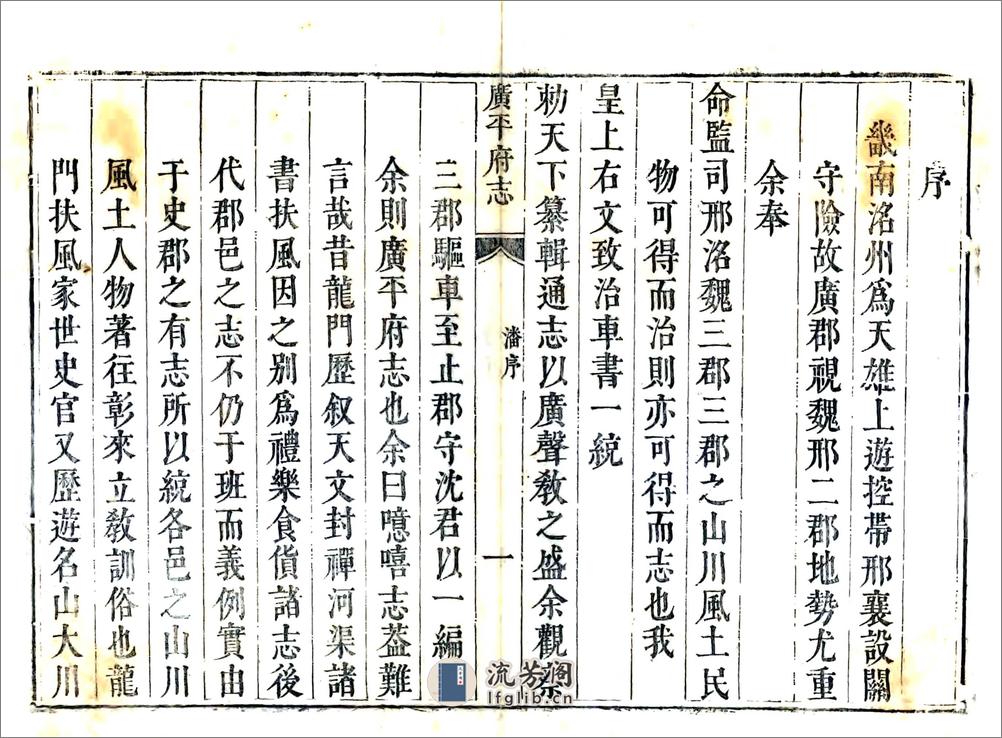 序
畿南洺州爲天雄上遊控帶邢襄設關
守險故廣郡視魏邢二郡地勢尤重
余奉
命監司邢洺魏三郡三郡之山川風土民
物可得而治則亦可得而志也我
皇上右文致治車書一統
勅天下纂輯通志以廣聲敎之盛余觀察
廣平府志
潘序
一
三郡驅車至止郡守沈君以一編
余則廣平府志也余曰噫嘻志葢難
言哉昔龍門歷叙天文封禪河渠諸
書扶風因之别爲禮樂食貨諸志後
代郡邑之志不仍于班而義例實由
于史郡之有志所以統各邑之山川
風土人物著往彰來立敎訓俗也龍
門扶風家世史官又歷遊名山大川
流芳閣
lfglib.cn